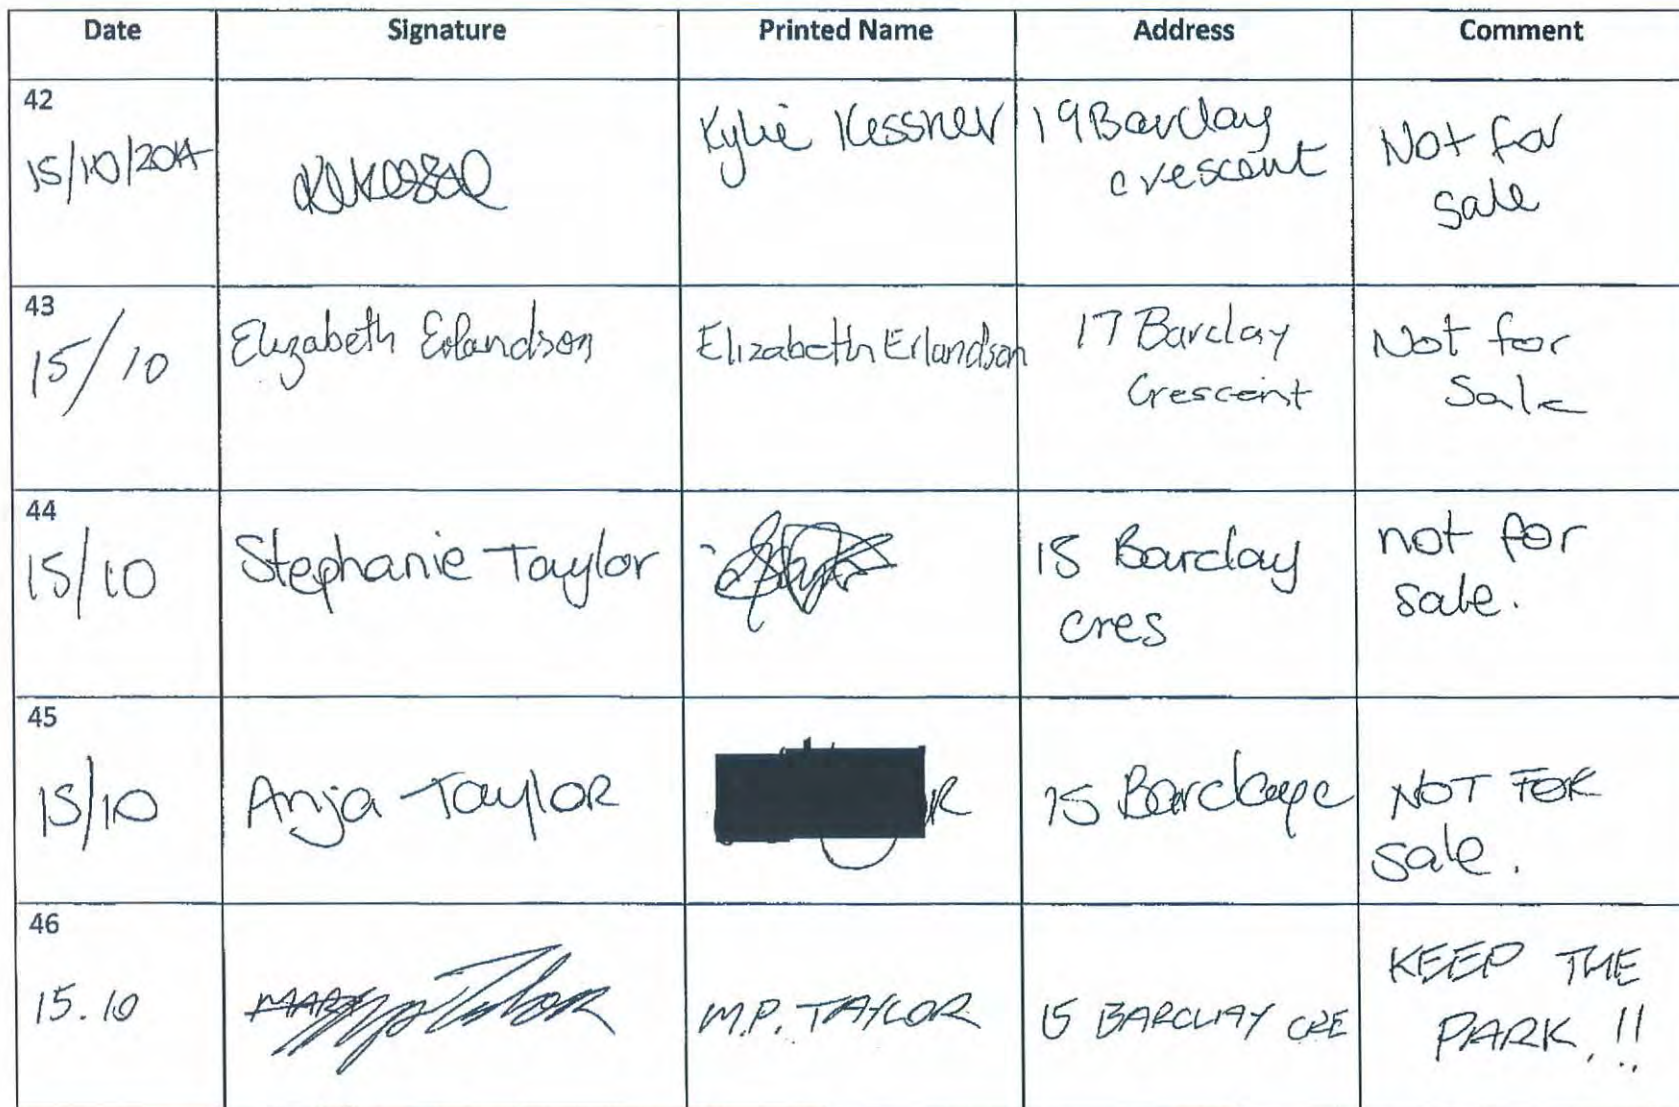 Date Signature Printed Name Address Comment
42
15/10/2014 Kylie Kessner 19 Barclay crescent Not for sale
43
15/10 Elizabeth Erlandson Elizabeth Erlandson 17 Barclay Crescent Not for Sale
44
15/10 Stephanie Taylor 15 Barclay cres not for sale.
45
15/10 Anja Taylor R 15 Barclay c NOT FOR sale.
46
15.10 M.P. TAYLOR 15 BARCLAY CRE KEEP THE PARK.!!